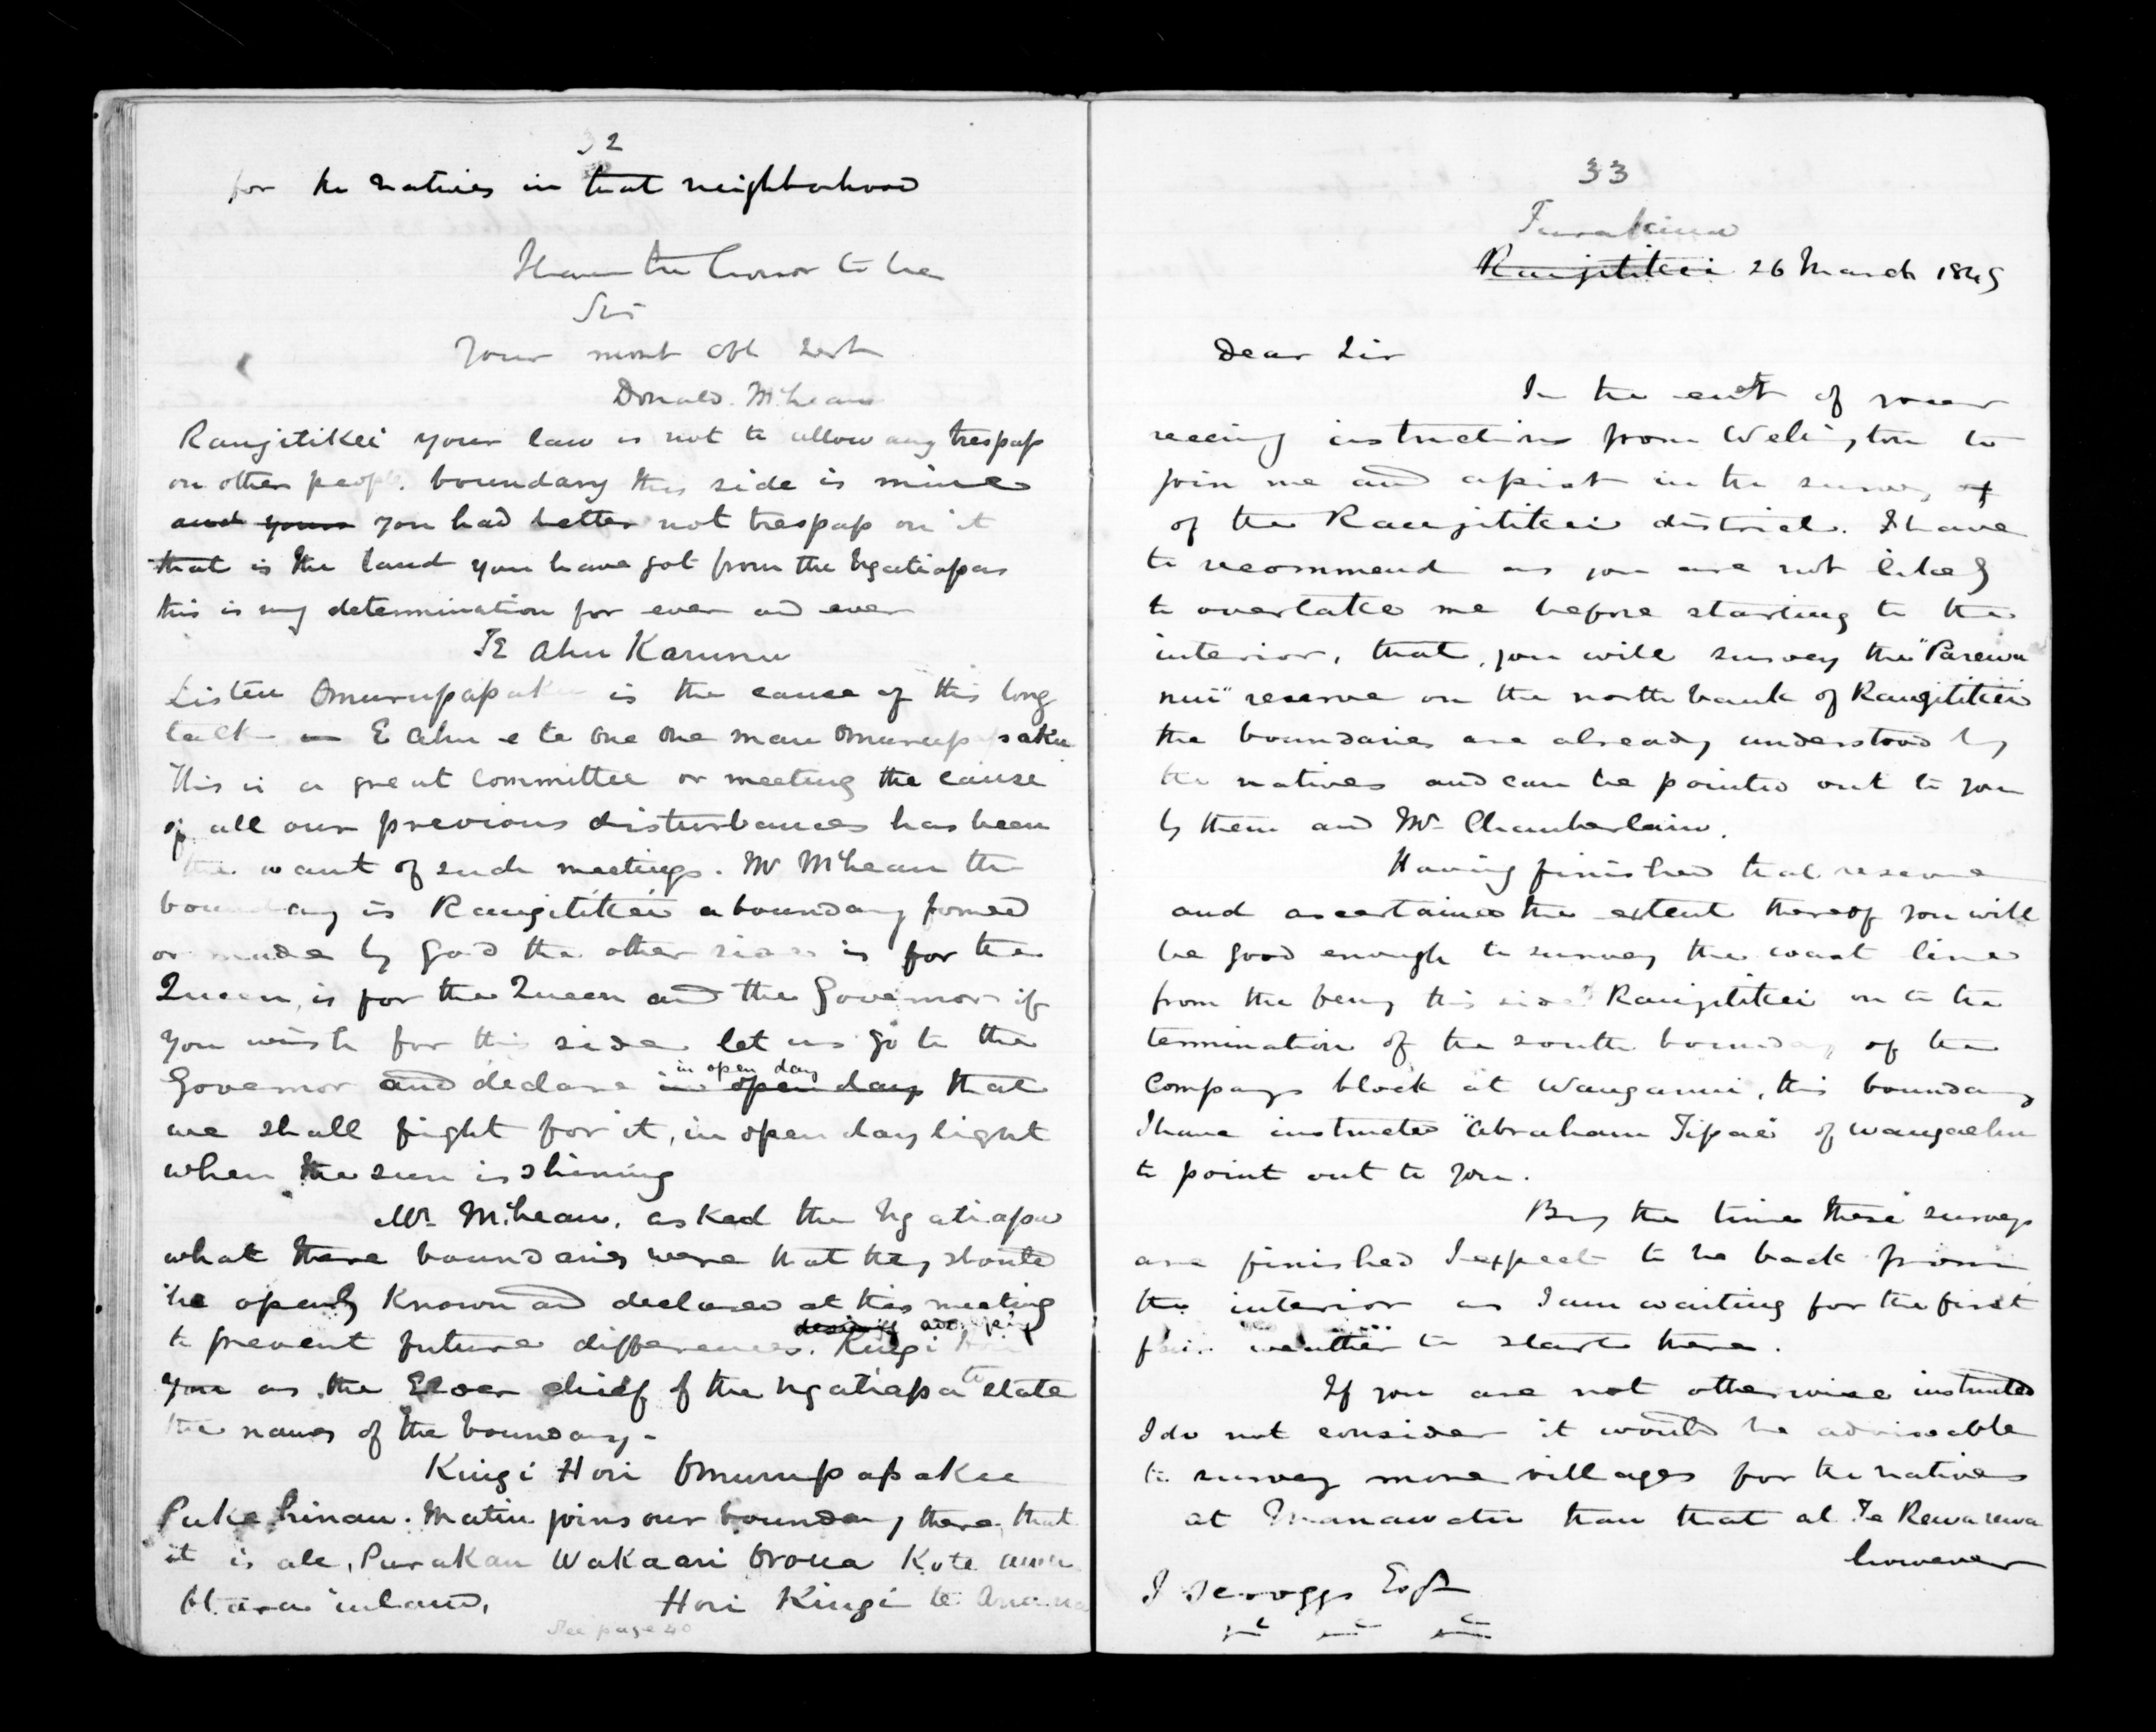 32
for the natives in that neighborhood
I have the honor to be
Sir
Your most obt Servt
Donald McLean
Rangitikei your law is not to allow any trespass
on other people. boundary this side is mine
and yours you had better not trespass on it
that is the land you have got from the Ngatiapas
this is my determination for ever and ever
TE Ahu Karumu
Listen Omurupapaku is the cause of this long
talk E Ahu e te one one man Omurupapaku
This is a great committee or meeting the cause
of all our previous disturbances has been
the want of such meetings. Mr McLean the
boundary is Rangitikei a boundary formed
or made by God the other side is for the
Queen, is for the Queen and the Governor if
you wish for this side let us go to the
in open day
Governor and declare in open day that
we shall fight for it, in open day light
when the sun is shining
Mr. McLean. asked the Ngatiapa
what there boundaries were that they should
be openly known and declared at this meeting
to prevent future differences. Kingi Hori
you as the Elder chief of the Ngatiapa to state
the names of the boundary-
Kingi Hori Omurupapakee
Puke hinau. Matiu joins our boundary there, that
it is all, Purakau Wakaari Oroua Kote
Otara inland, Hori Kingi te
See page 40
33
Turakina
Rangitikei 26 March 1849
Dear Sir
In the event of your
receing instructions from Welington to
join me and assist in the survey of
of the Rangitikei district. I have
to recommend as you are not likely
to overtake me before starting to the
interior, that, you will survey the "Parewa
nui" reserve on the north bank of Rangitikei
the boundaries are already understood by
the natives and can be pointed out to you
by them and Mr Chamberlain.
Having finished that reserve
and ascertained the extent thereof you will
be good enough to survey the coast line
from the ferry this side Rangitikei on to the
termination of the south boundary of the
Companys block at Wanganui, this boundary
I have instructed "Abraham Tipae" of Wangaehu
to point out to you.
By the time these surveys
are finished I expect to be back from
the interior as I am waiting for the first
fair weather to start there.
If you are not otherwise instructed
I do not consider it would be adviseable
to survey more villages for the natives
at Manawatu than that at Te Rewarewa
however
I Scroggs Esqr